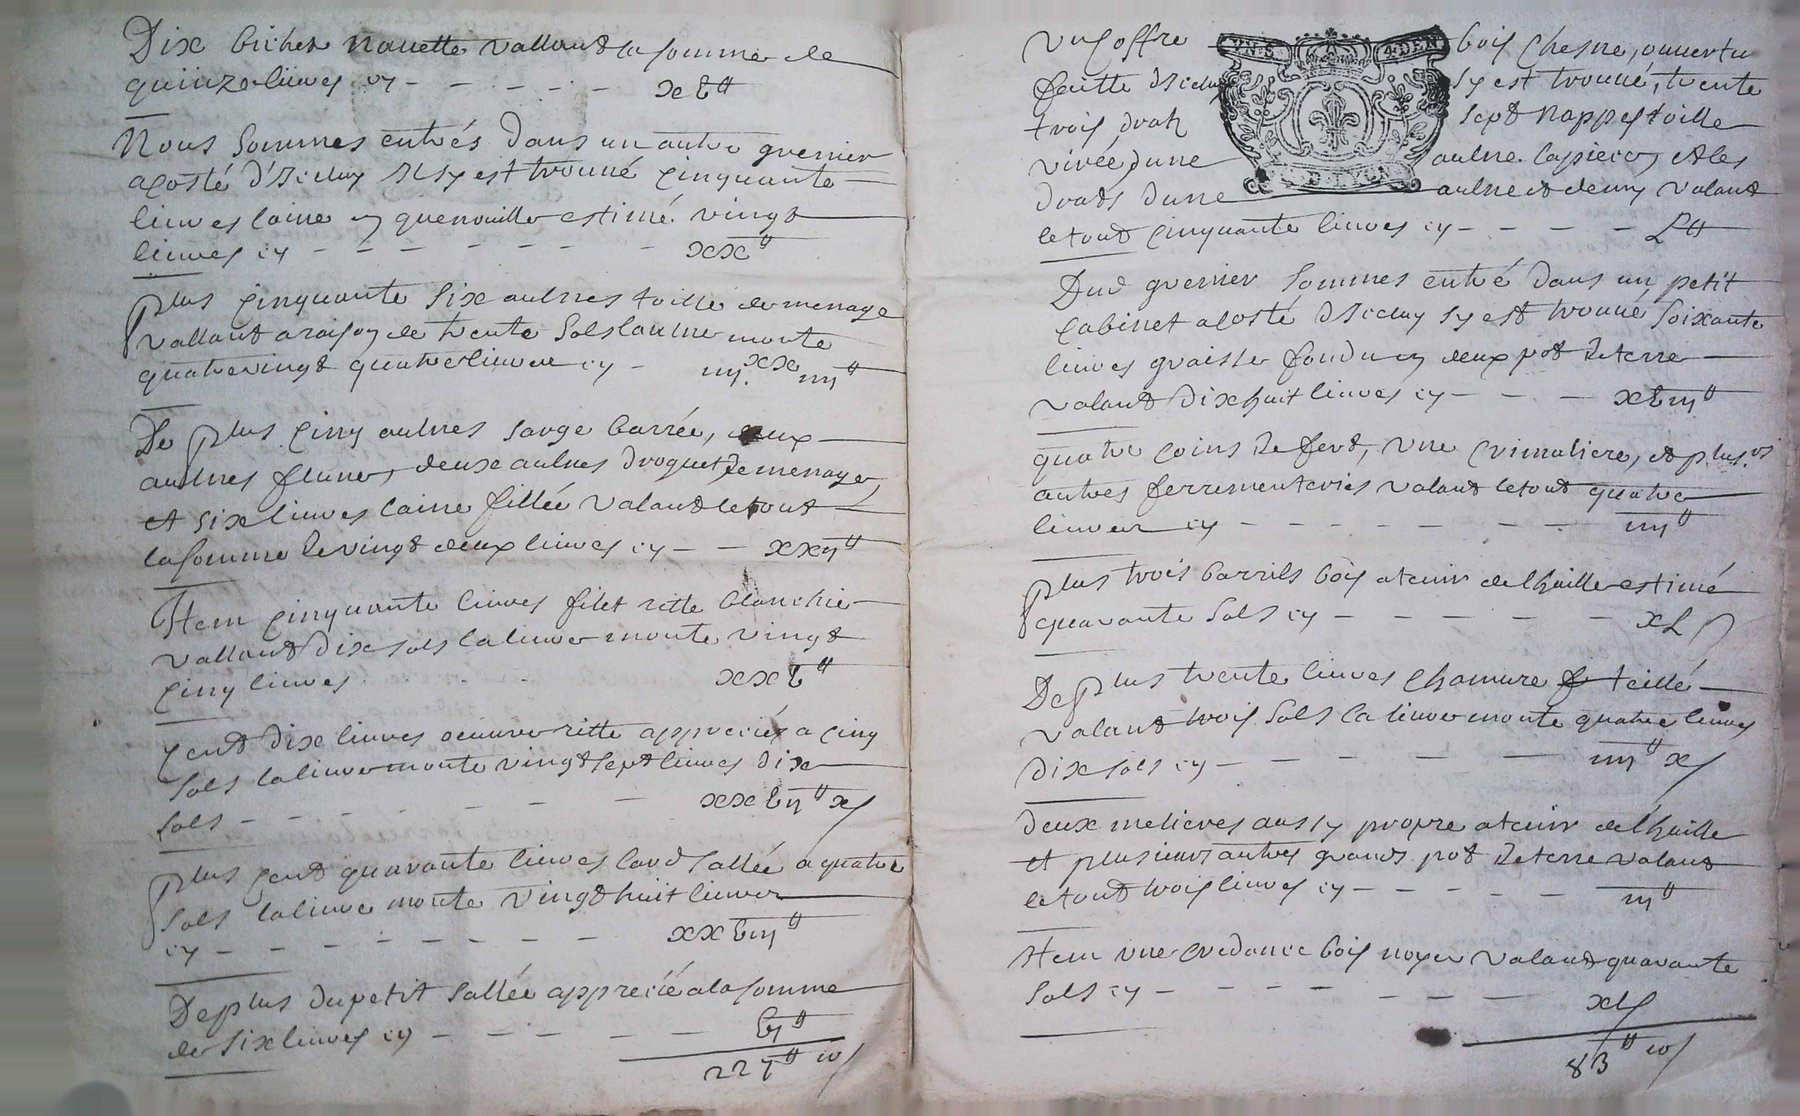 Dix bichet navette vallant la somme de
quinze livres cy - - - - - xv ₶
Nous sommes entrés dans un autre grenier
a costé d'Iceluy Il sy est trouvé cinquante
livres laine en quenouille estimé vingt
livres cy - - - - - - - - xx ₶
plus cinquante six aulnes toille de menage
vallant a raison de trente sols laulne monte
quatrevingt quatre livres cy - iiij. xx iiij ₶
De plus cinq aulnes sarge barrée, deux
aulnes deux aulnes droguet de menage,
et six livres laine fillée valant le tout
la somme de vingt deux livres cy - - xxij ₶
Item cinquante livres filet ritte blanchie
vallant dix sols la livre monte vingt
cinq livres xxv ₶
cent dix livres oeuvre ritte appreciés a cinq
sols la livre monte vingt sept livres dix
sols - - - - - - xxvij ₶ x s
plus cent quarante livres lard sallée a quatre
sols la livre monte vingt huit livres
cy - - - - - - - - xxviij ₶
De plus du petit sallée appreciée a la somme
de six livres cy - - - - - vj ₶
227 ₶ 10 s
UN S 4 DEN
D LYON
un coffre bois chesne, ouverte
faitte d'Iceluy sy est trouvé, trente
trois drats sept nappes toille
virée, dune aulne la piece, et les
drats dune aulne et demy valant
le tout cinquante livres cy - - - - L ₶
Dud grenier sommes entré dans un petit
cabinet a costé d'Iceluy sy est trouvé soixante
livres graisse fondu en deux pot de terre
valant dix huit livres cy - - - xviij ₶
quatre coins de fert, une crimaliere, et plus.rs
autres ferrementeries valant le tout quatre
livres cy - - - - - - - iiij ₶
plus trois barrils bois a tenir de lhuille estimé
quarante sols cy - - - - - xL s
De plus trente livres chanvre teillé
valant trois sols la livre monte quatre livres
dix sols cy - - - - - - iiij ₶ x s
deux melieres aussy propre a tenir de lhuille
et plusieurs autres grands pot de terre valant
le tout trois livres cy - - - - - iij ₶
Item une credance bois noyer valant quarante
sols cy - - - - - - - xL s
83 ₶ 10 s